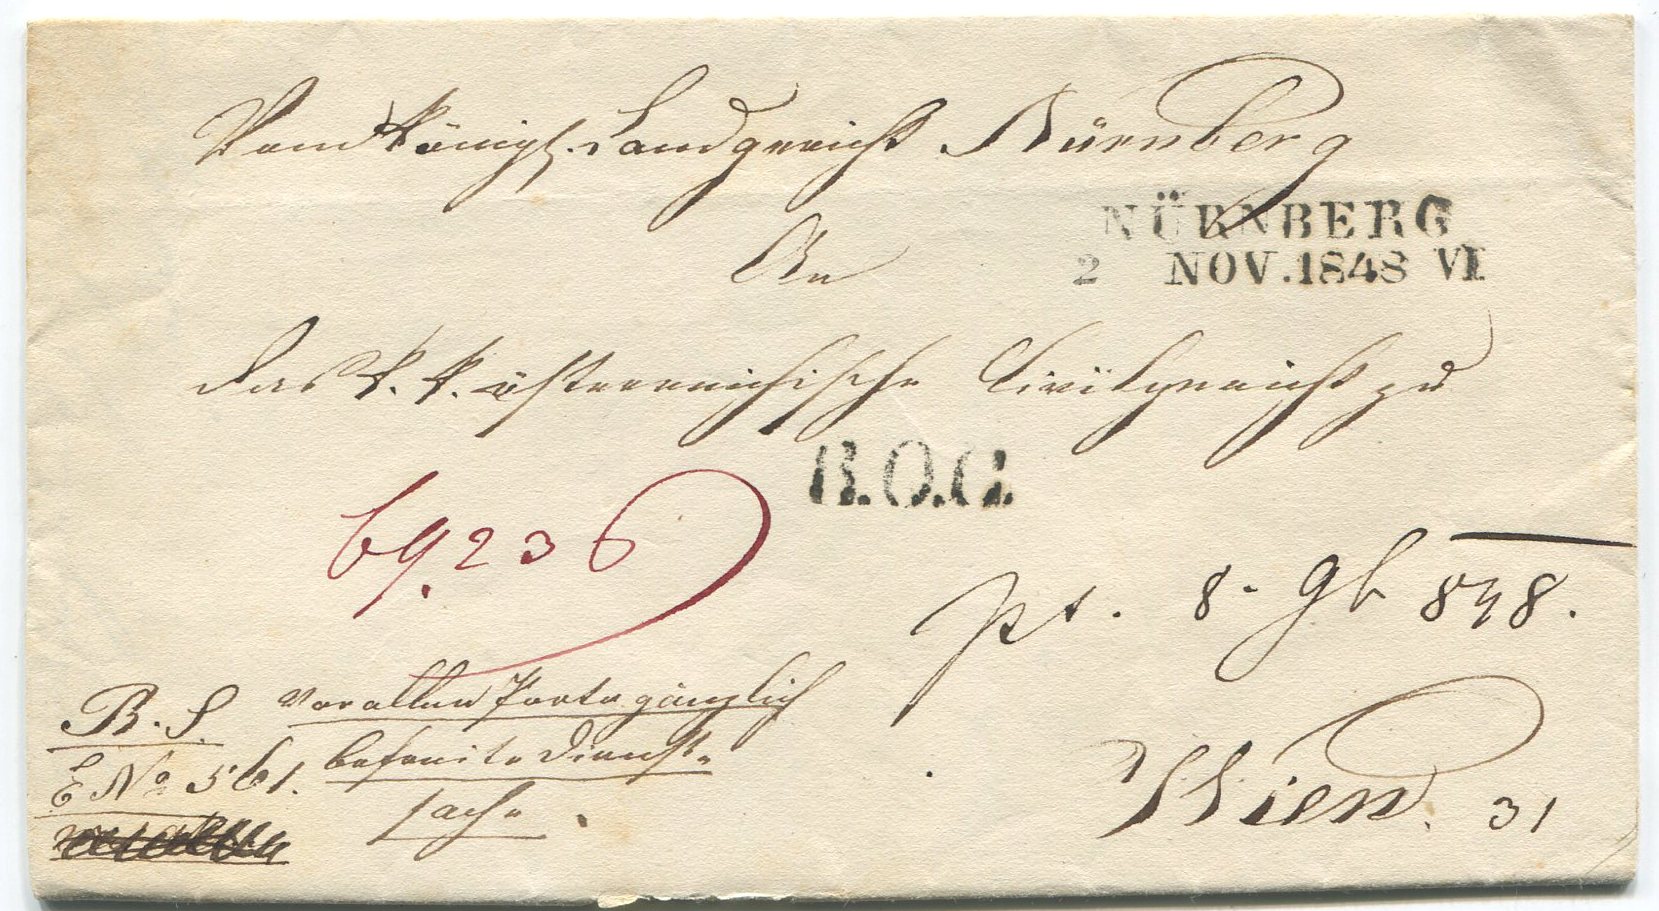 Vom Königl. Landgericht Nürnberg
NÜRNBERG
2 NOV. 1848 VI
An
das k. k. österreichische Civilgericht zu
R.O.G.
69.236
pt. 8. 9b 848.
R. S. von allem Porto gänzlich
E No 561. befreite Dienst-
sache.
Wien. 31